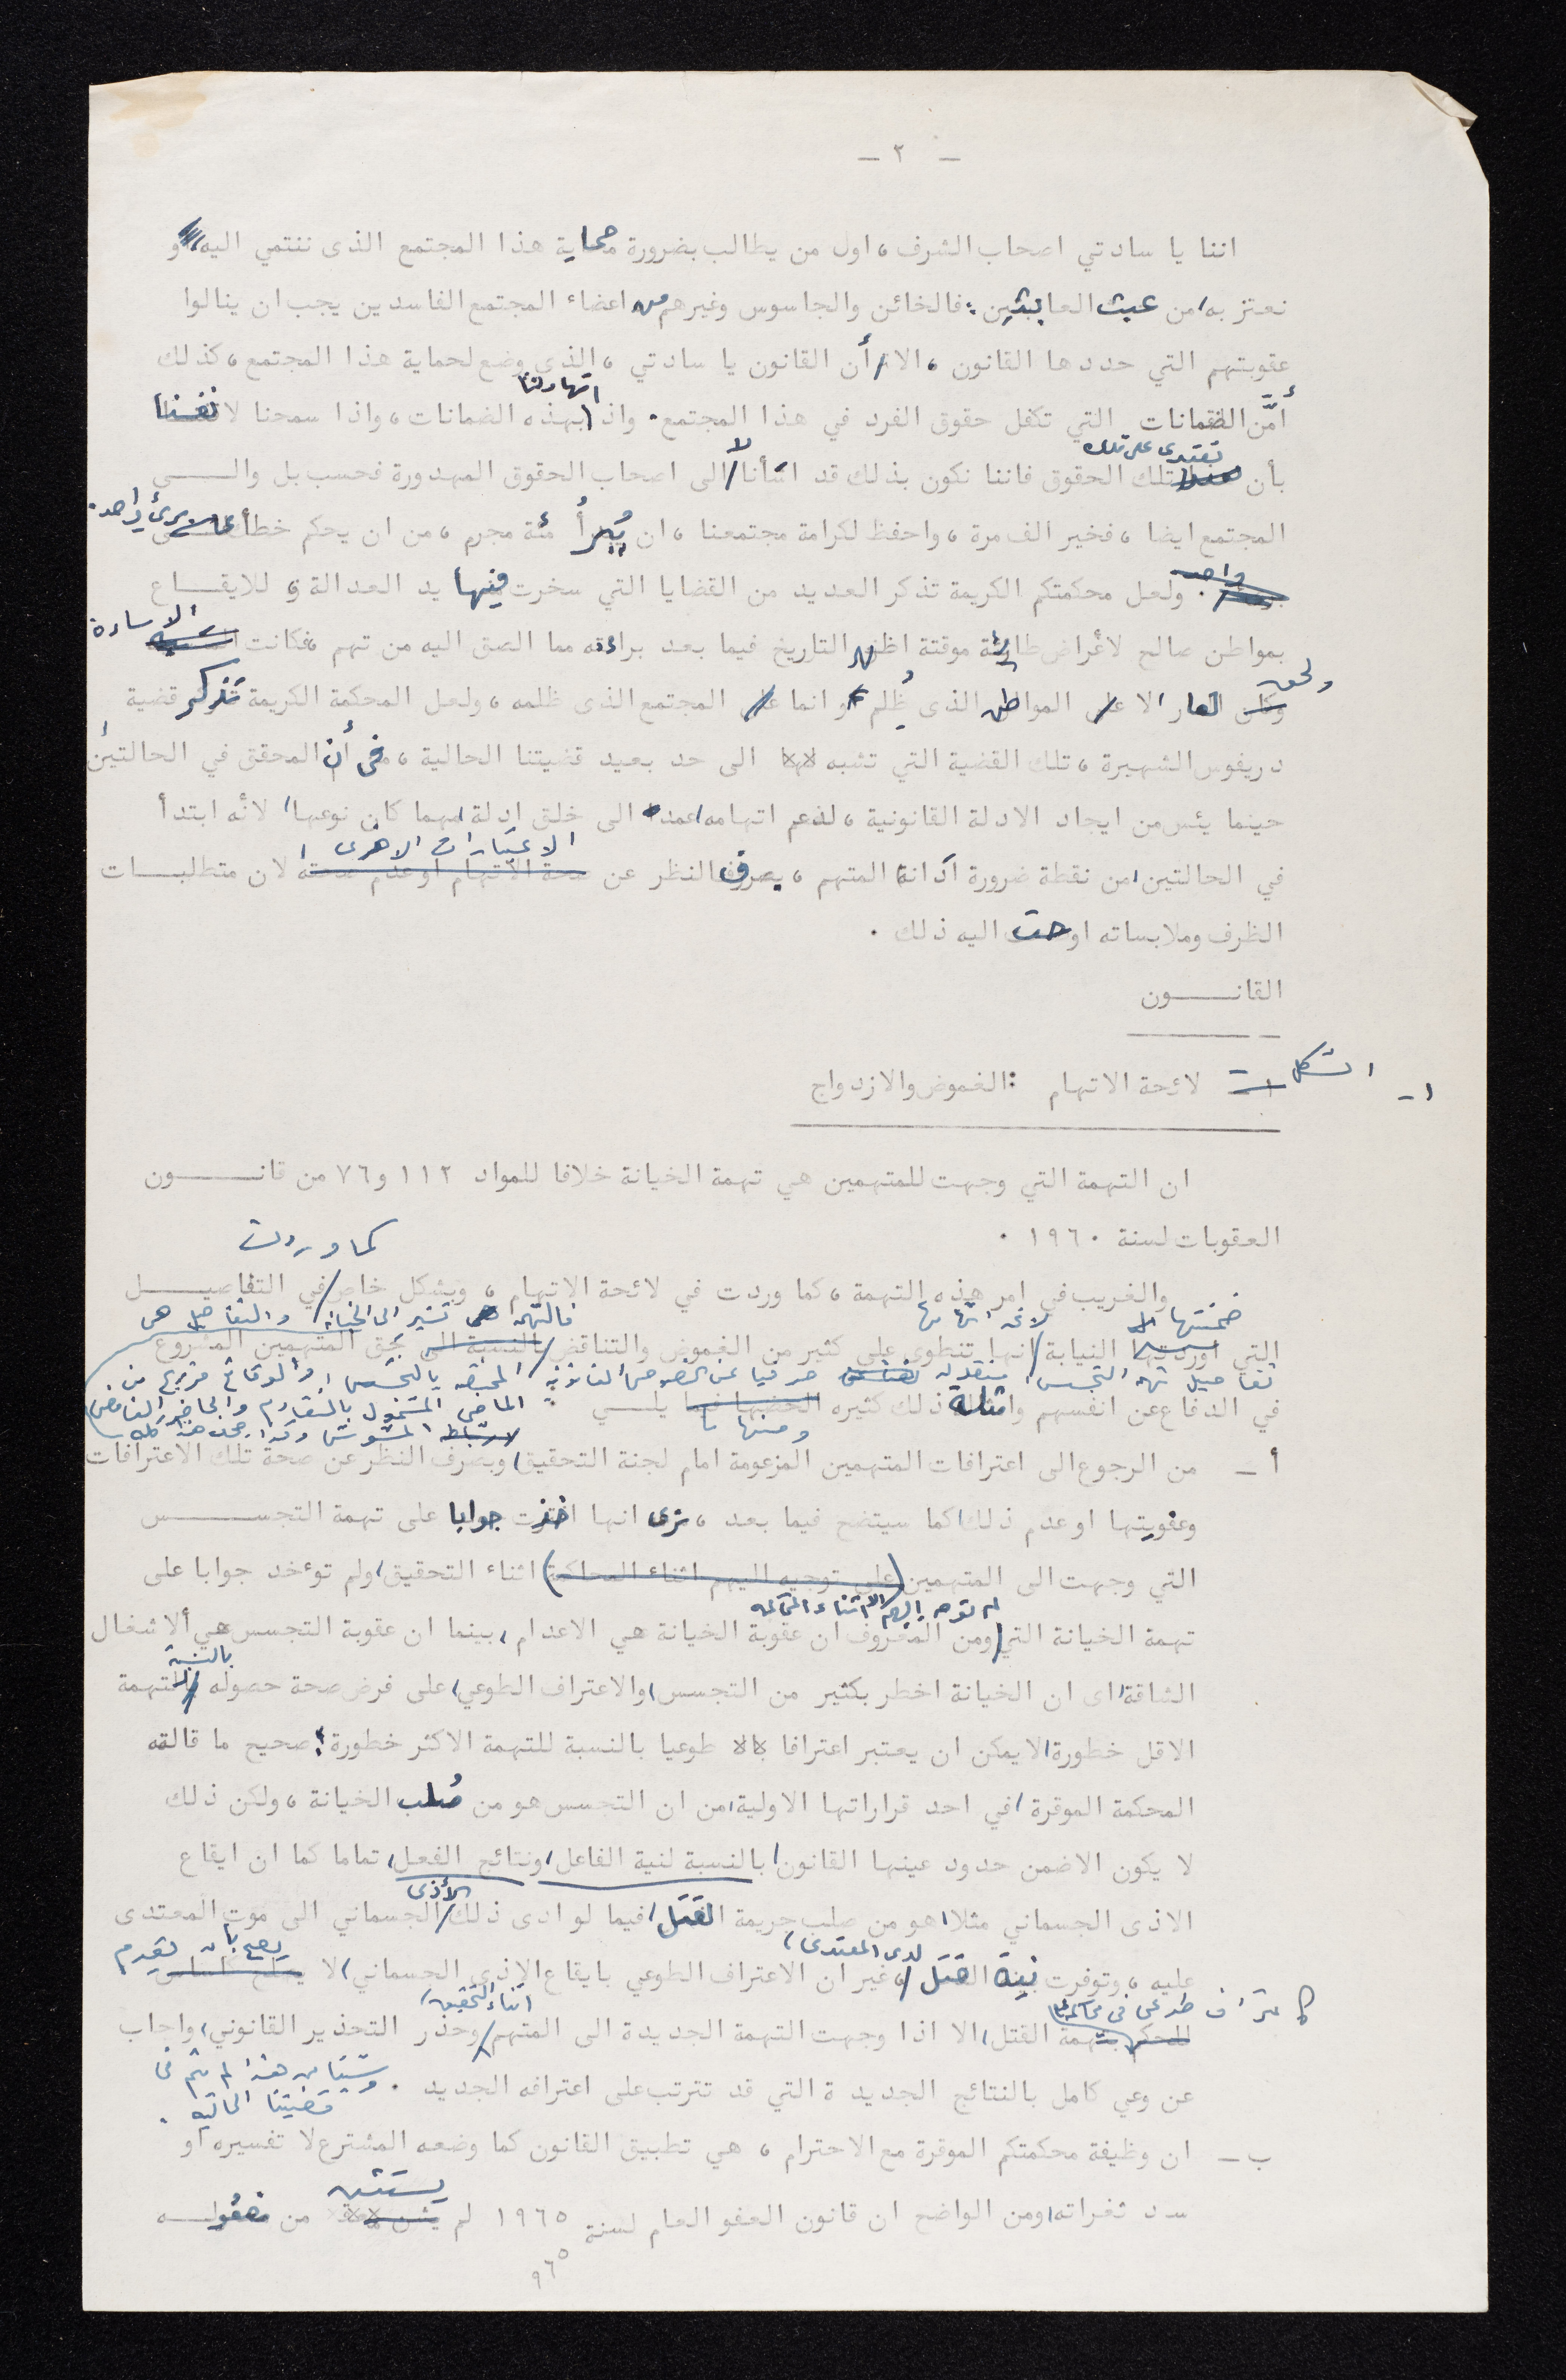 — ٢ —
اننا يا سادتي اصحاب الشرف ، اول من يطالب بضرورة حماية هذا المجتمع الذى ننتمي اليه و
نعتز به من عبث العابثين ؛ فالخائن والجاسوس وغيرهم من اعضاء المجتمع الفاسدين يجب ان ينالوا
عقوبتهم التي حددها القانون ، الا أن القانون يا سادتي ، الذى وضع لحماية هذا المجتمع ، كذلك
أمّن الضمانات التي تكفل حقوق الفرد في هذا المجتمع . واذا تهاونّا بهذه الضمانات ، واذا سمحنا لانفسنا
بأن نعتدى على تلك الحقوق فاننا نكون بذلك قد اسأنا لا الى اصحاب الحقوق المهدورة فحسب بل والى
المجتمع ايضا ، فخير الف مرة ، واحفظ لكرامة مجتمعنا ، ان يُبرأ مئة مجرم ، من ان يحكم خطأ على برئ واحد .
ولعل محكمتكم الكريمة تذكر العديد من القضايا التي سخرت فيها يد العدالة للايقاع
بمواطن صالح لأغراض طارئة موقتة اظهر التاريخ فيما بعد براءته مما الصق اليه من تهم ، فكانت الاساءة
ولحق العار لا المواطن الذى ظُلم و انما المجتمع الذى ظلمه ، ولعل المحكمة الكريمة تذكر قضية
دريفوس الشهيرة ، تلك القضية التي تشبه الى حد بعيد قضيتنا الحالية ، في أن المحقق في الحالتين
حينما يئس من ايجاد الادلة القانونية ، لدعم اتهامه عمد الى خلق ادلة مهما كان نوعها لأنه ابتدأ
في الحالتين من نقطة ضرورة ادانة المتهم ، بصرف النظر عن الاعتبارات الاخرى لان متطلبات
الظرف وملابساته اوحت اليه ذلك .
القانـــون
١ - الشكل لائحة الاتهام : الغموض والازدواج
ان التهمة التي وجهت للمتهمين هي تهمة الخيانة خلافا للمواد ١١٢ و ٧٦ من قانـــون
العقوبات لسنة ١٩٦٠ .
كما وردت
والغريب في امر هذه التهمة ، كما وردت في لائحة الاتهام ، وبشكل خاص في التفاصيـــل
فالتهمة تشير الى الخيانة والتفاصيل هي
التي ضمنتها النيابة لائحة اتهامها انها تنطوى على كثير من الغموض والتناقض بحق المتهمين المشروع
تفاصيل تهمة التجسس منقولة حرفيا عن النصوص القانونية المحيطة بالتجسس والوقائع مزيج من
في الدفاع عن انفسهم وامثلة ذلك كثيره ومنها ما يلـــي الماضي المشمول بالتقادم والحاضر الغامض
المشوش
أ — من الرجوع الى اعترافات المتهمين المزعومة امام لجنة التحقيق وبصرف النظر عن صحة تلك الاعترافات
وعفويتها او عدم ذلك كما سيتضح فيما بعد ، نرى انها اخذت جوابا على تهمة التجســـس
التي وجهت الى المتهمين (على توجيه اليهم اثناء المحاكمة) اثناء التحقيق ولم تؤخذ جوابا على
تهمة الخيانة التي لم توجه اليهم الا اثناء المحاكمة ومن المعروف ان عقوبة الخيانة هي الاعدام ، بينما ان عقوبة التجسس هي ألاشغال
الشاقة اى ان الخيانة اخطر بكثير من التجسس والاعتراف الطوعي على فرض صحة حصوله بالنسبة للتهمة
الاقل خطورة لا يمكن ان يعتبر اعترافا طوعيا بالنسبة للتهمة الاكثر خطورة ؛ صحيح ما قالته
المحكمة الموقرة في احد قراراتها الاولية من ان التجسس هو من صُلب الخيانة ، ولكن ذلك
لا يكون الا ضمن حدود عينها القانون بالنسبة لنية الفاعل ونتائج الفعل ، تماما كما ان ايقاع
الاذى الجسماني مثلا هو من صلب جريمة القتل فيما لو ادى ذلك الأذى الجسماني الى موت المعتدى
عليه ، وتوفرت نية القتل لدى المعتدى ، غير ان الاعتراف الطوعي بايقاع الاذى الجسماني لا يصلح بان يقدم
كاعتراف طوعي في محاكمة تهمة القتل الا اذا وجهت التهمة الجديدة الى المتهم اثناء التحقيق وحذر التحذير القانوني واجاب
عن وعي كامل بالنتائج الجديدة التي قد تترتب على اعترافه الجديد . وشيئا من هذا لم يتم في
قضيتنا الحالية .
ب — ان وظيفة محكمتكم الموقرة مع الاحترام ، هي تطبيق القانون كما وضعه المشترع لا تفسيره او
سد ثغراته ومن الواضح ان قانون العفو العام لسنة ١٩٦٥ لم يستثن من مفعولـــه
٩٦٥